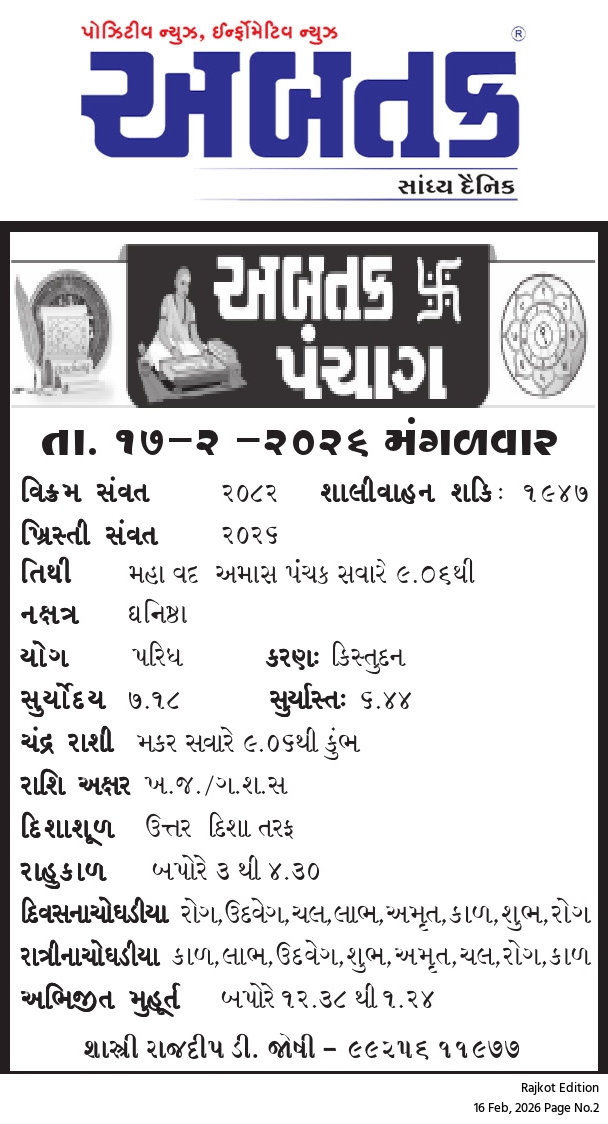 પોઝિટીવ ન્યુઝ, ઈર્ન્ફોમેટિવ ન્યુઝ
અબતક ®
સાંધ્ય દૈનિક
અબતક 卐
પંચાગ
તા. ૧૭-૨ -૨૦૨૬ મંગળવાર
વિક્રમ સંવત ૨૦૮૨ શાલીવાહન શકિ: ૧૯૪૭
ખ્રિસ્તી સંવત ૨૦૨૬
તિથી મહા વદ અમાસ પંચક સવારે ૯.૦૬થી
નક્ષત્ર ઘનિષ્ઠા
યોગ પરિધ કરણ: કિસ્તુદન
સુર્યોદય ૭.૧૮ સુર્યાસ્ત: ૬.૪૪
ચંદ્ર રાશી મકર સવારે ૯.૦૬થી કુંભ
રાશિ અક્ષર ખ.જ./ગ.શ.સ
દિશાશૂળ ઉત્તર દિશા તરફ
રાહુકાળ બપોરે ૩ થી ૪.૩૦
દિવસનાચોઘડીયા રોગ,ઉદવેગ,ચલ,લાભ,અમૃત,કાળ,શુભ,રોગ
રાત્રીનાચોઘડીયા કાળ,લાભ,ઉદવેગ,શુભ,અમૃત,ચલ,રોગ,કાળ
અભિજીત મુહૂર્ત બપોરે ૧૨.૩૮ થી ૧.૨૪
શાસ્ત્રી રાજદીપ ડી. જોષી – ૯૯૨૫૬ ૧૧૯૭૭
Rajkot Edition
16 Feb, 2026 Page No.2